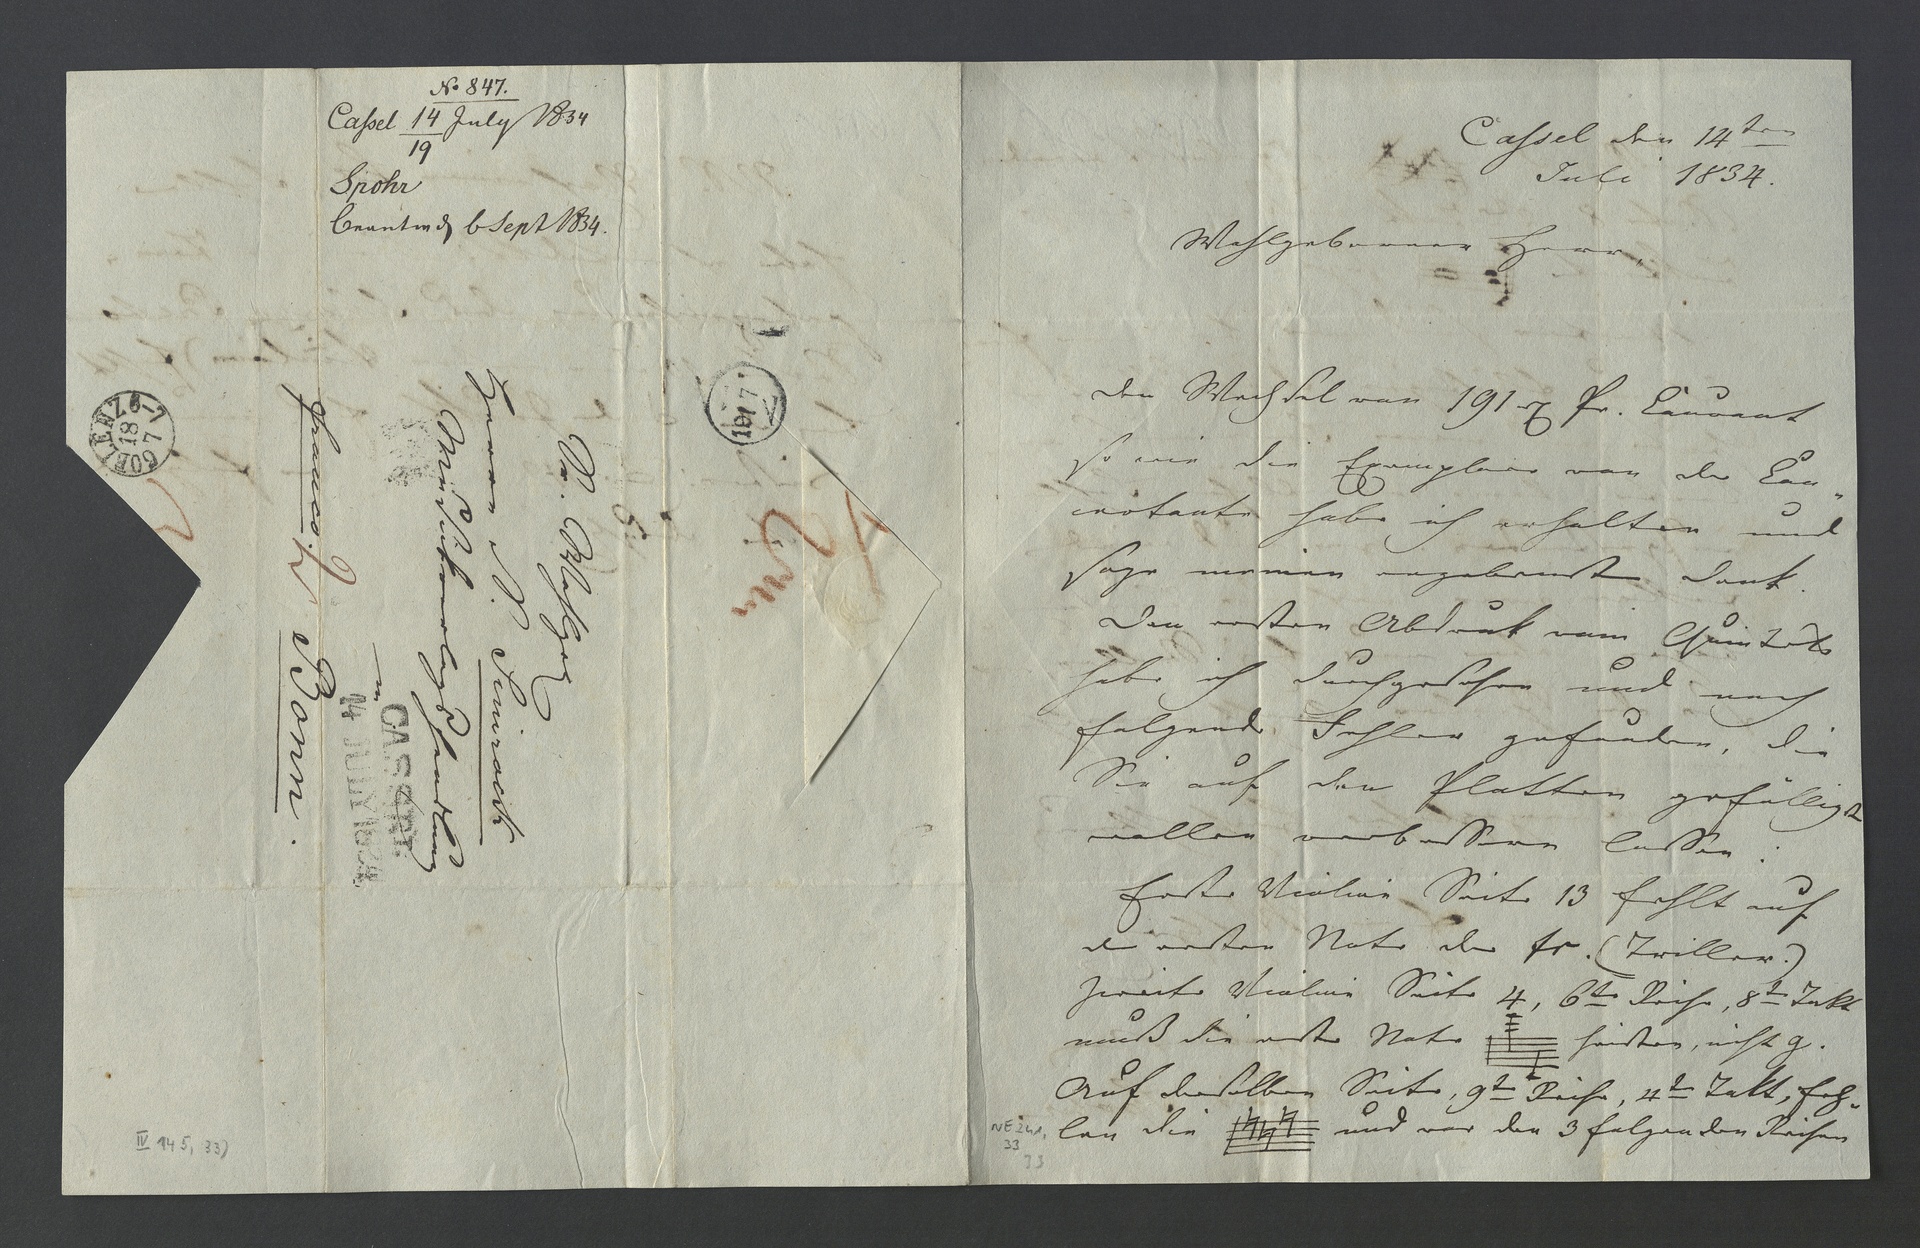 No 847.
Cassel 14 July 1834
19
Spohr
beantw d 6 Sept 1834.
COBLENZ 6-7
18
7
19 7
Sr. Wohlgeb
Herrn N. Simrock
Musikverlagshandlung
in
Bonn.
franco.
CASSEL
14 JULY 1834
IV 145, 33)
Cassel den 14ten
Juli 1834.
Wohlgeborner Herr,
Den Wechsel von 191 Pr. Courant
so wie die Exemplare von der Con-
certante habe ich erhalten und
sage meinen ergebensten Dank.
Den ersten Abdruck vom Quintett
habe ich durchgesehen und noch
folgende Fehler gefunden, die
Sie auf den Platten gefälligst
wollen verbessern lassen:
Erste Violine Seite 13 fehlt auf
der ersten Note der tr. (Triller.)
Zweite Violine Seite 4, 6te Reihe, 8te Takt
muß die erste Note heißen, nicht g.
Auf derselben Seite, 9te Reihe, 4te Takt, feh-
len die und vor den 3 folgenden Reihen
NE 241,
33
33